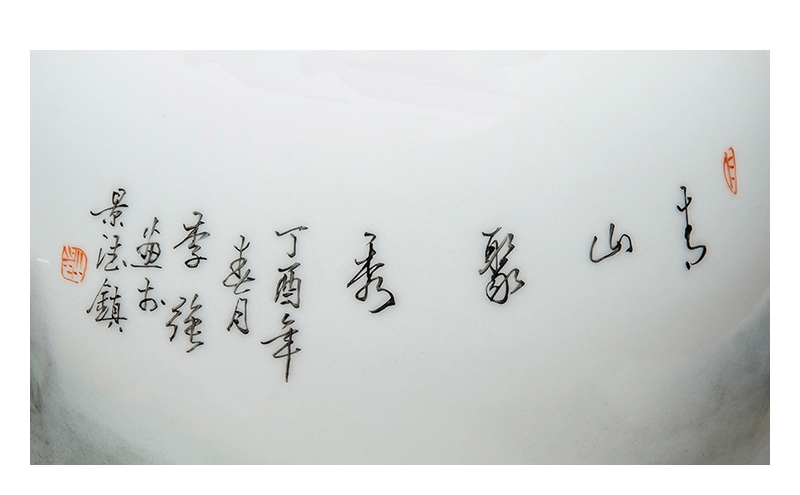 青山聚秀
丁酉年
春月
李强
画于
景德鎮